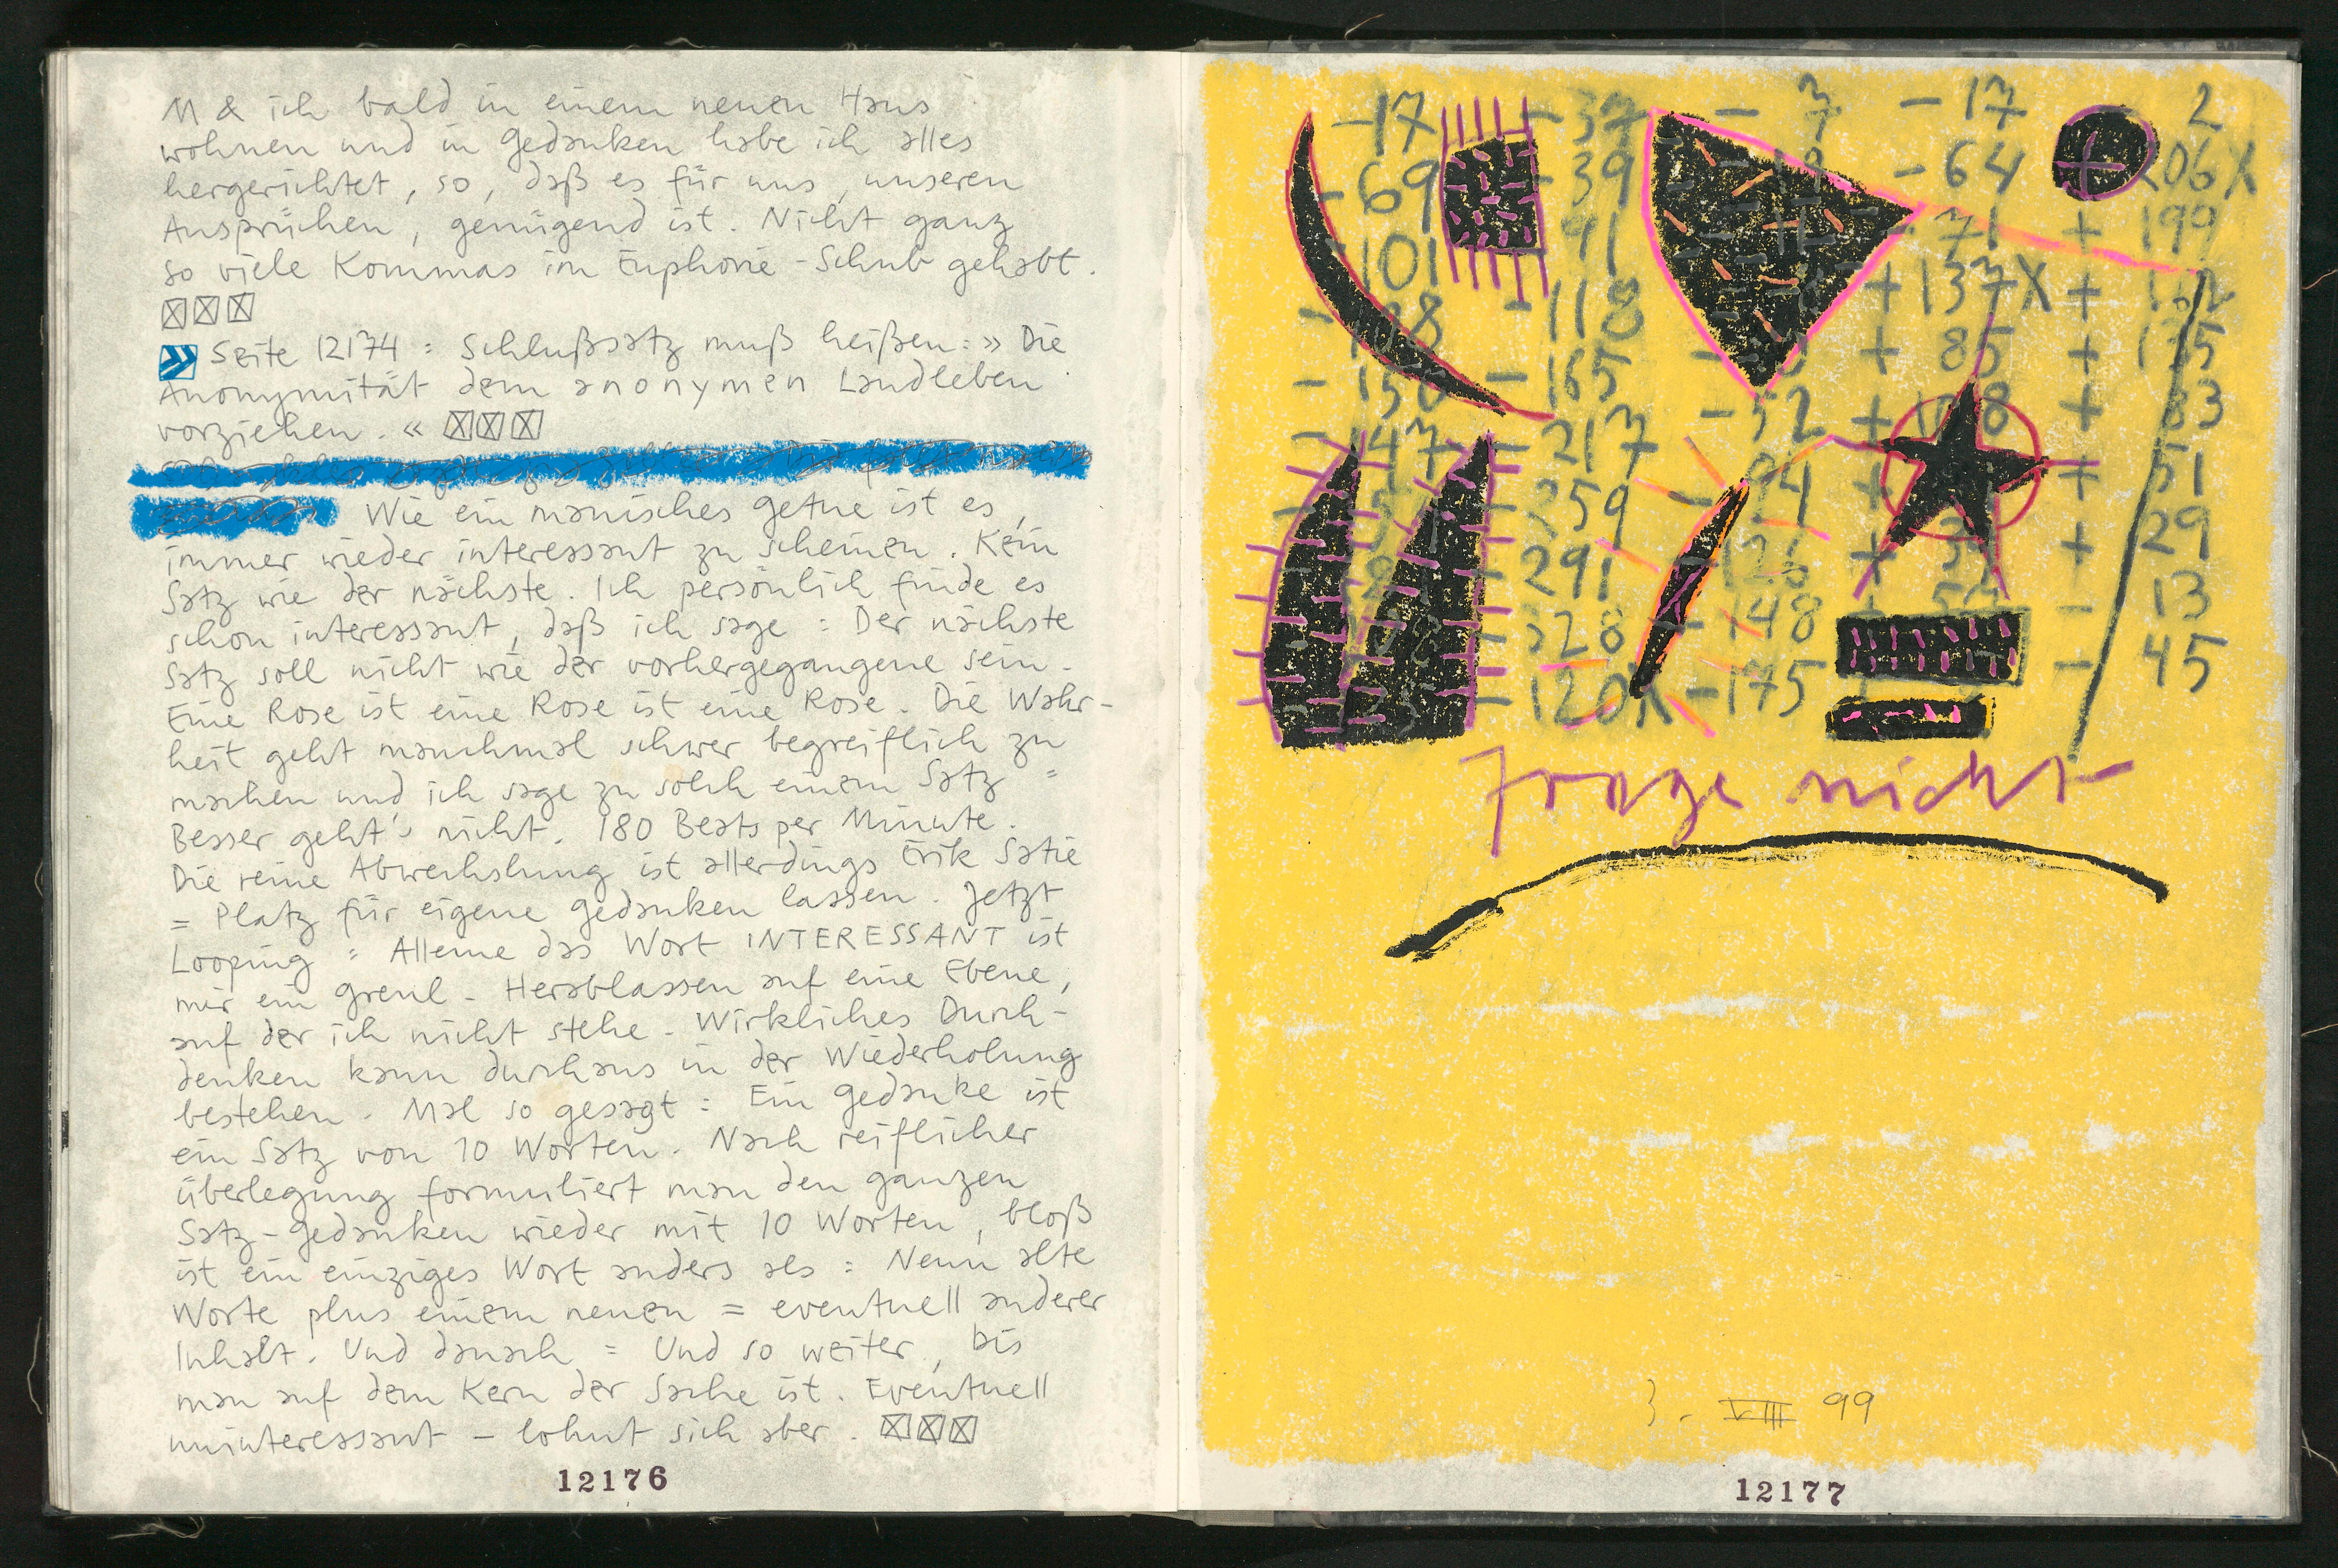 M & ich bald in einem neuen Haus
wohnen und in Gedanken habe ich alles
hergerichtet, so, daß es für uns, unseren
Ansprüchen, genügend ist. Nicht ganz
so viele Kommas im Euphorie-Schub gehabt.
» Seite 12174 : Schlußsatz muß heißen: » Die
Anonymität dem anonymen Landleben
vorziehen. «
Wie ein manisches Getue ist es,
immer wieder interessant zu scheinen. Kein
Satz wie der nächste. Ich persönlich finde es
schon interessant, daß ich sage : Der nächste
Satz soll nicht wie der vorhergegangene sein.
Eine Rose ist eine Rose ist eine Rose. Die Wahr-
heit geht manchmal schwer begreiflich zu
machen und ich sage zu solch einem Satz =
Besser geht's nicht. 180 Beats per Minute.
Die reine Abwechslung ist allerdings Erik Satie
= Platz für eigene Gedanken lassen. Jetzt
Looping : Alleine das Wort INTERESSANT ist
mir ein Greul - Herablassen auf eine Ebene,
auf der ich nicht stehe - Wirkliches Durch-
denken kann durchaus in der Wiederholung
bestehen. Mal so gesagt : Ein Gedanke ist
ein Satz von 10 Worten. Nach reiflicher
Überlegung formuliert man den ganzen
Satz-Gedanken wieder mit 10 Worten, bloß
ist ein einziges Wort anders als : Neun alte
Worte plus einem neuen = eventuell anderer
Inhalt. Und danach = Und so weiter, bis
man auf dem Kern der Sache ist. Eventuell
uninteressant - lohnt sich aber.
12176
-17 -37 - 7 -17 2
-69 -39 -64 + 206X
101 41 71 + 199
-118 +137X +
-165 + 85 + 175
-52 + + 83
-217 + 51
259 + + 29
291 + - 13
-328 -148 - 45
-120X -175
Frage nicht
3. VIII 99
12177